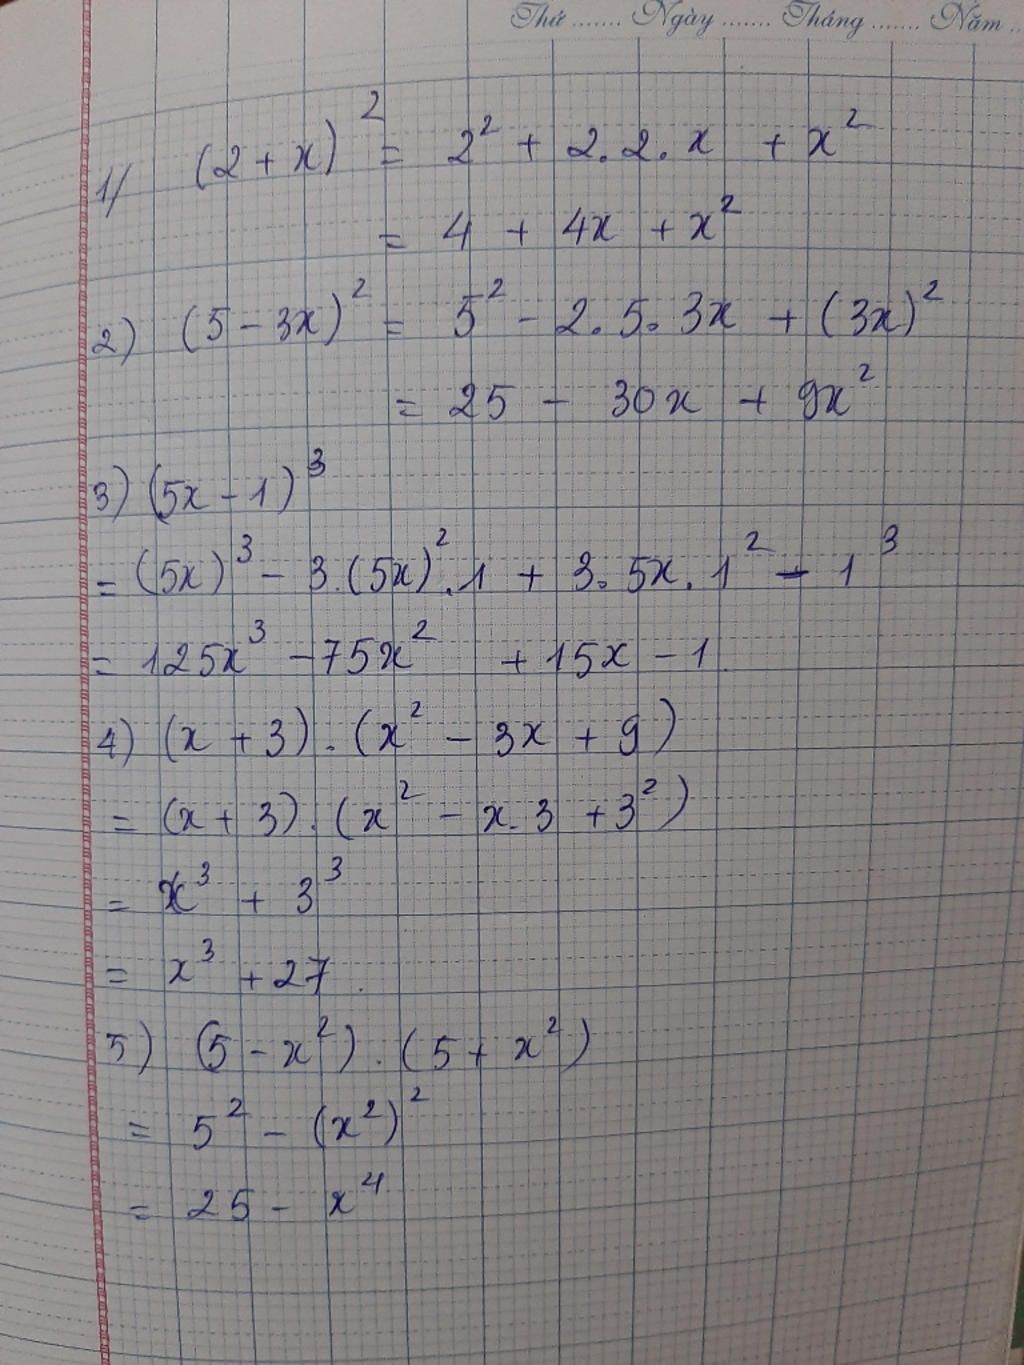 Thứ ....... Ngày ....... Tháng ....... Năm ..
1/ (2 + x)² = 2² + 2.2.x + x²
= 4 + 4x + x²
2) (5 - 3x)² = 5² - 2.5.3x + (3x)²
= 25 - 30x + 9x²
3) (5x - 1)³
= (5x)³ - 3.(5x)².1 + 3.5x.1² - 1³
= 125x³ - 75x² + 15x - 1.
4) (x + 3).(x² - 3x + 9)
= (x + 3).(x² - x.3 + 3²)
= x³ + 3³
= x³ + 27.
5) (5 - x²).(5 + x²)
= 5² - (x²)²
= 25 - x⁴